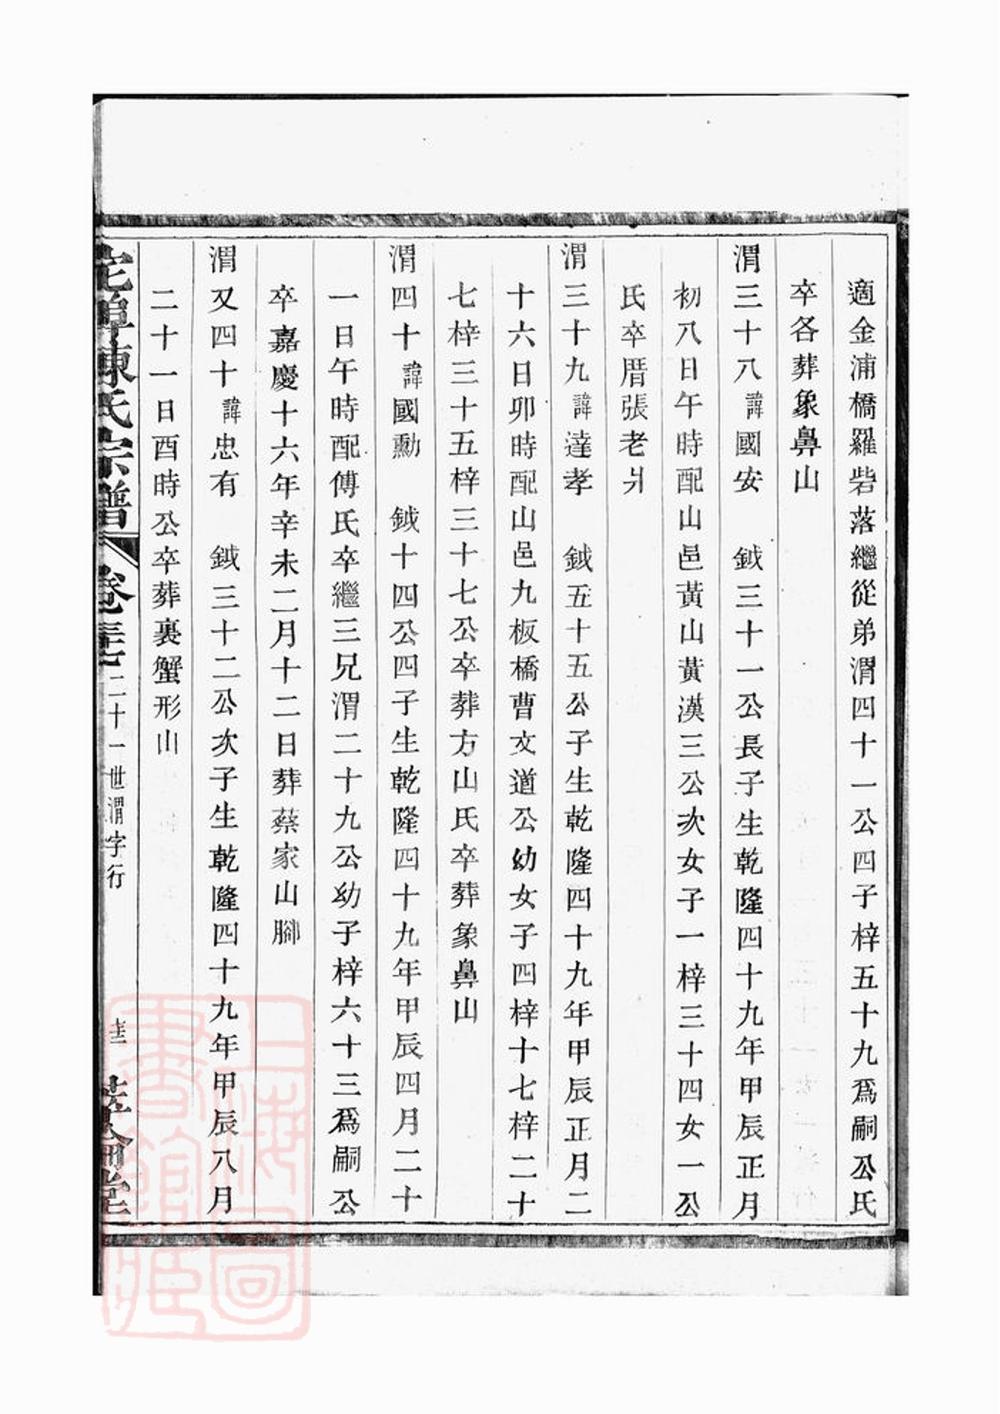 適金浦橋羅砦落繼從弟渭四十一公四子梓五十九爲嗣公氏
卒各葬象鼻山
渭三十八諱國安　鉞三十一公長子生乾隆四十九年甲辰正月
初八日午時配山邑黃山黃漢三公次女子一梓三十四女一公
氏卒厝張老爿
渭三十九諱達孝　鉞五十五公子生乾隆四十九年甲辰正月二
十六日卯時配山邑九板橋曹文道公幼女子四梓十七梓二十
七梓三十五梓三十七公卒葬方山氏卒葬象鼻山
渭四十諱國勳　鉞十四公四子生乾隆四十九年甲辰四月二十
一日午時配傅氏卒繼三兄渭二十九公幼子梓六十三爲嗣公
卒嘉慶十六年辛未二月十二日葬蔡家山腳
渭又四十諱忠有　鉞三十二公次子生乾隆四十九年甲辰八月
二十一日酉時公卒葬裏蟹形山
埠陳氏宗譜　卷　二十一世渭字行　堂
上海圖書館藏